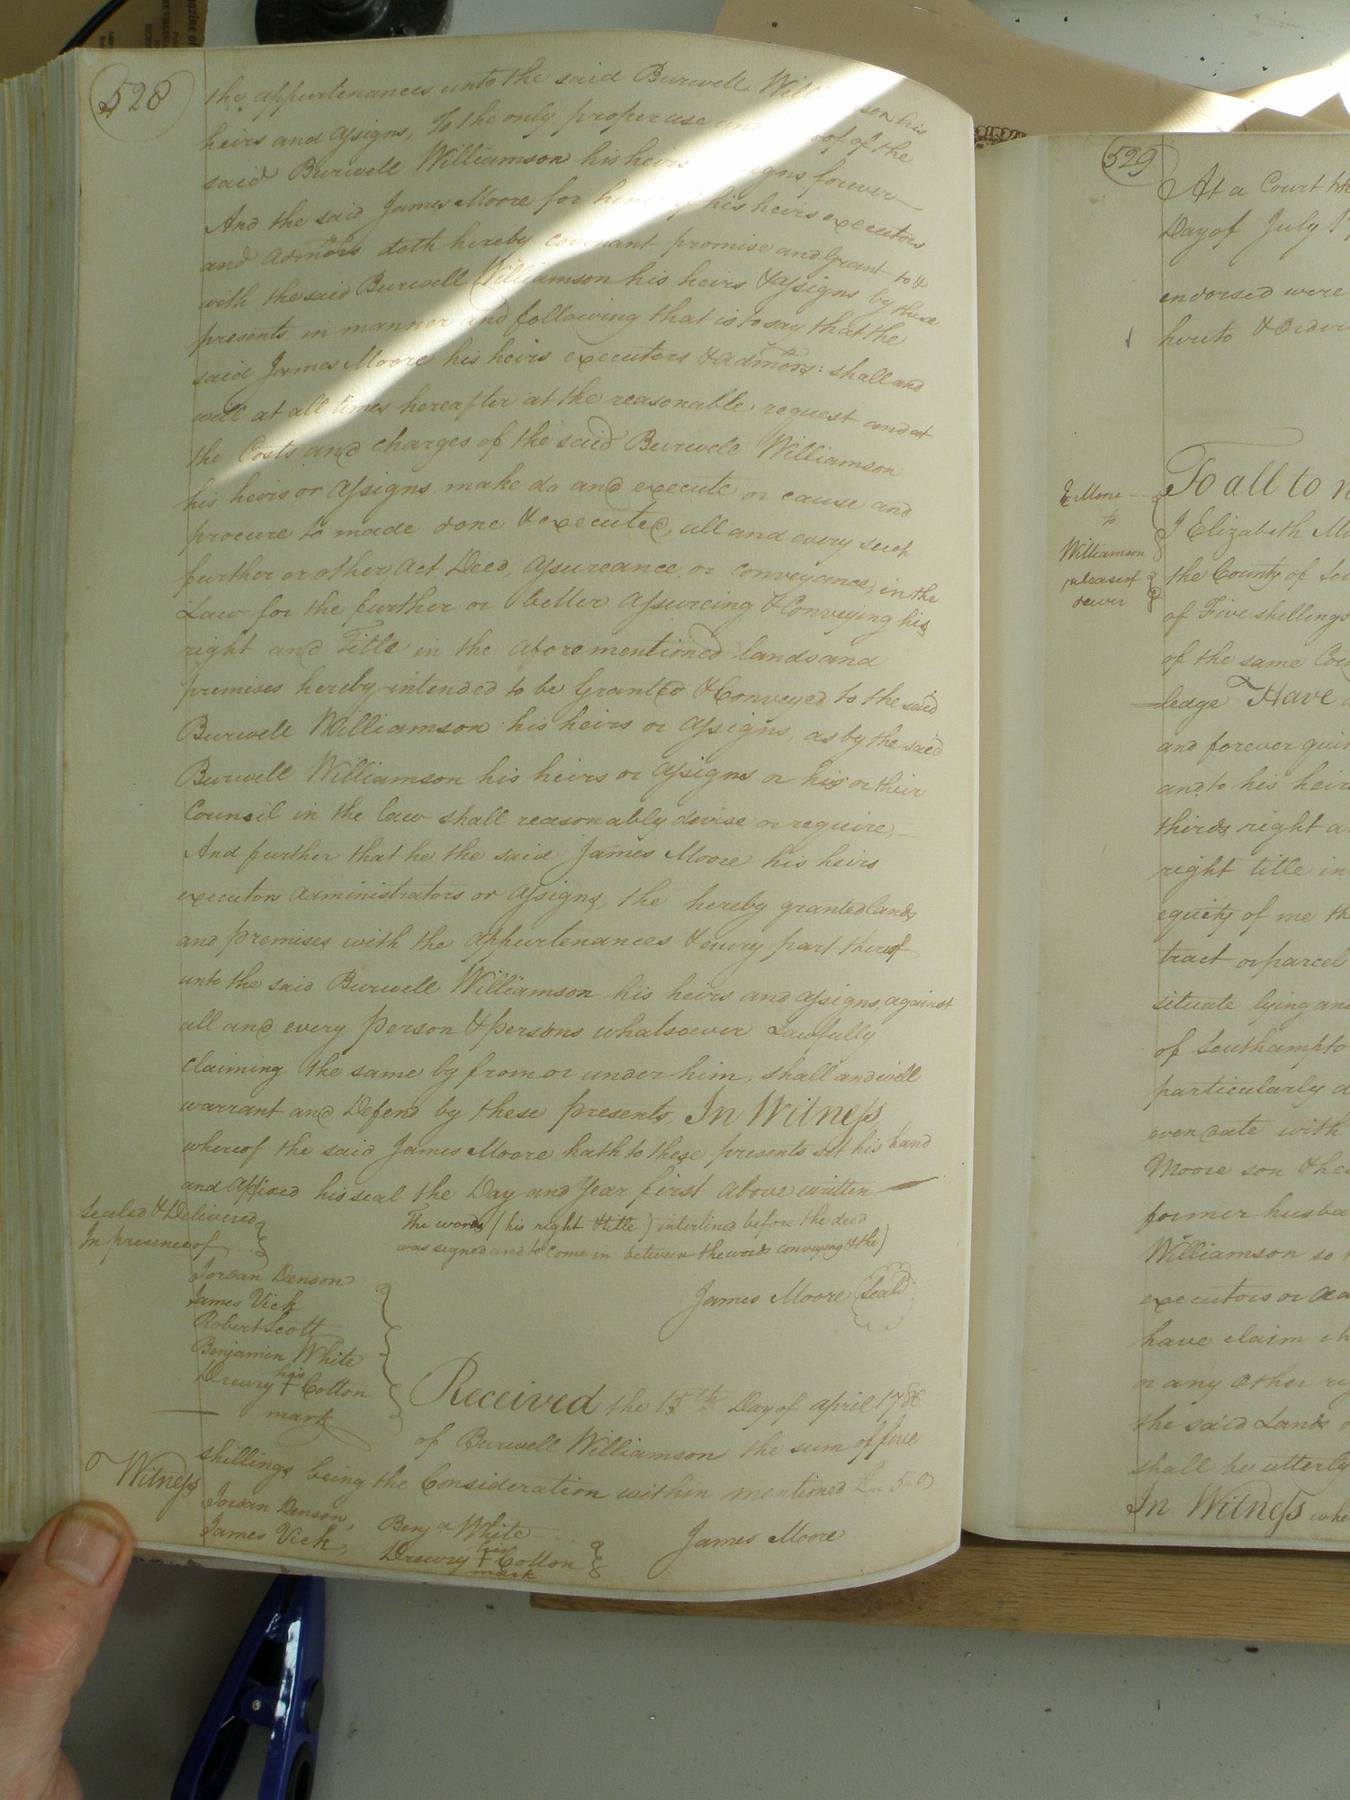 528
the appurtenances unto the said Burwell Williamson his
heirs and assigns, To the only proper use and behoof of the
said Burwell Williamson his heirs assigns forever
And the said James Moore for himself his heirs executors
and admors doth hereby covenant promise and Grant to &
with the said Burwell Williamson his heirs & assigns by these
presents in manner and following that is to say that the
said James Moore his heirs executors & admors: shall and
will at all times hereafter at the reasonable request and at
the Costs and charges of the said Burwell Williamson
his heirs or assigns make do and execute or cause and
procure to made done & executed, all and every such
further or other Act Deed, assureance or conveyance, in the
Law for the further or better assureing & Conveying his
right and Title in the aforementioned lands and
premises hereby intended to be Granted & Conveyed to the said
Burwell Williamson his heirs or assigns, as by the said
Burwell Williamson his heirs or assigns or his or their
Council in the law shall reasonably devise or require
And further that he the said James Moore his heirs
executors administrators or assigns, the hereby granted lands
and premises with the appurtenances & every part thereof
unto the said Burwell Williamson his heirs and assigns against
all and every person & persons whatsoever Lawfully
claiming the same by from or under him, shall and will
warrant and Defend by these presents, In Witness
whereof the said James Moore hath to these presents set his hand
and affixed his seal the Day and Year first above written
Sealed & Delivered
In presence of
The words (his right & title) interlined before the deed
was signed and to come in between the words conveying & the)
Jordan Denson
James Vick
Robert Scott
Benjamin White
Drewry his + Cotton
mark
James Moore (Seal)
Received the 15th Day of april 1786
of Burwell Williamson the sum of five
shillings being the Consideration within mentioned
Witness
Jordan Denson,
James Vick,
Benjn White
Drewry his + Cotton
mark
James Moore
529
At a Court
Day of July
endorsed were
hereto &
E Moore
to
Williamson
release of
dower
To all to
I Elizabeth
the County of
of Five shillings
of the same
ledge Have
and forever
and to his heirs
thirds right
right title in
equity of me
tract or parcel
situate lying and
of Southampton
particularly
even date with
Moore son &
former
Williamson so
executors or
have claim
or any other
the said Land
shall be utterly
In Witness